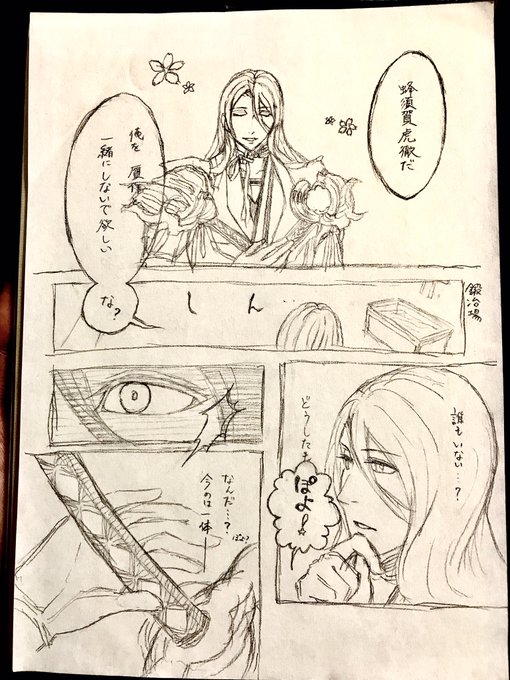 蜂須賀虎徹だ
俺を 贋作と
一緒にしないで欲しい
な?
しん…
鍛冶場
誰もいない…?
どうした
ぽよ!
なんだ…?
今のは一体
ぽよ?